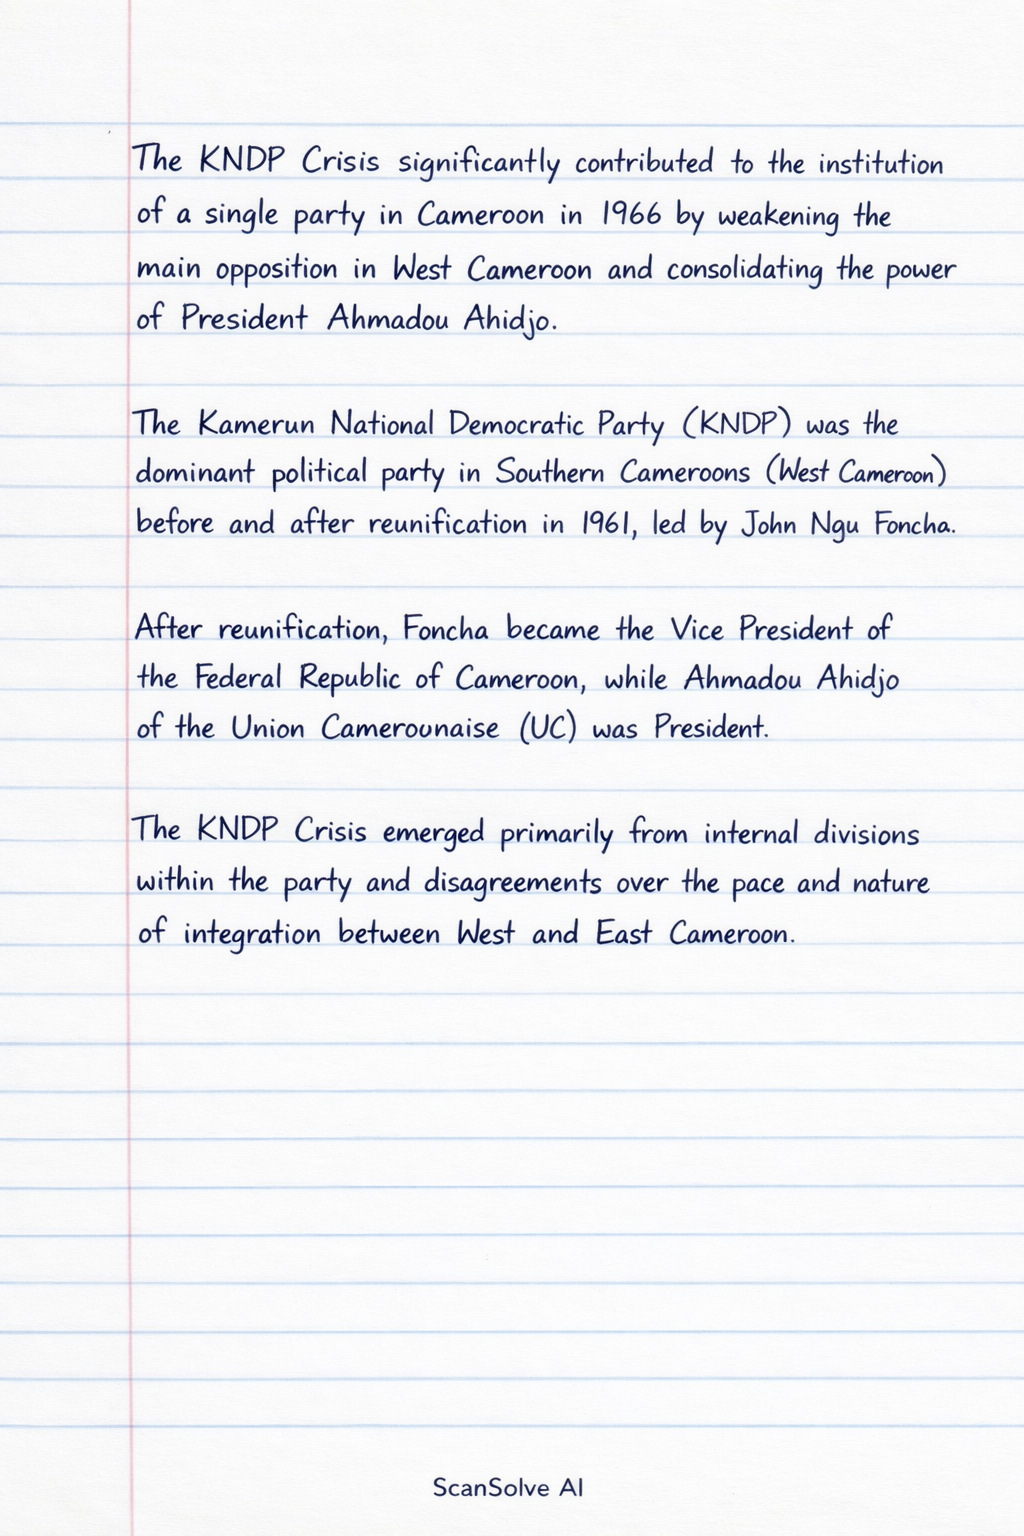 The KNDP Crisis significantly contributed to the institution
of a single party in Cameroon in 1966 by weakening the
main opposition in West Cameroon and consolidating the power
of President Ahmadou Ahidjo.
The Kamerun National Democratic Party (KNDP) was the
dominant political party in Southern Cameroons (West Cameroon)
before and after reunification in 1961, led by John Ngu Foncha.
After reunification, Foncha became the Vice President of
the Federal Republic of Cameroon, while Ahmadou Ahidjo
of the Union Camerounaise (UC) was President.
The KNDP Crisis emerged primarily from internal divisions
within the party and disagreements over the pace and nature
of integration between West and East Cameroon.
ScanSolve AI